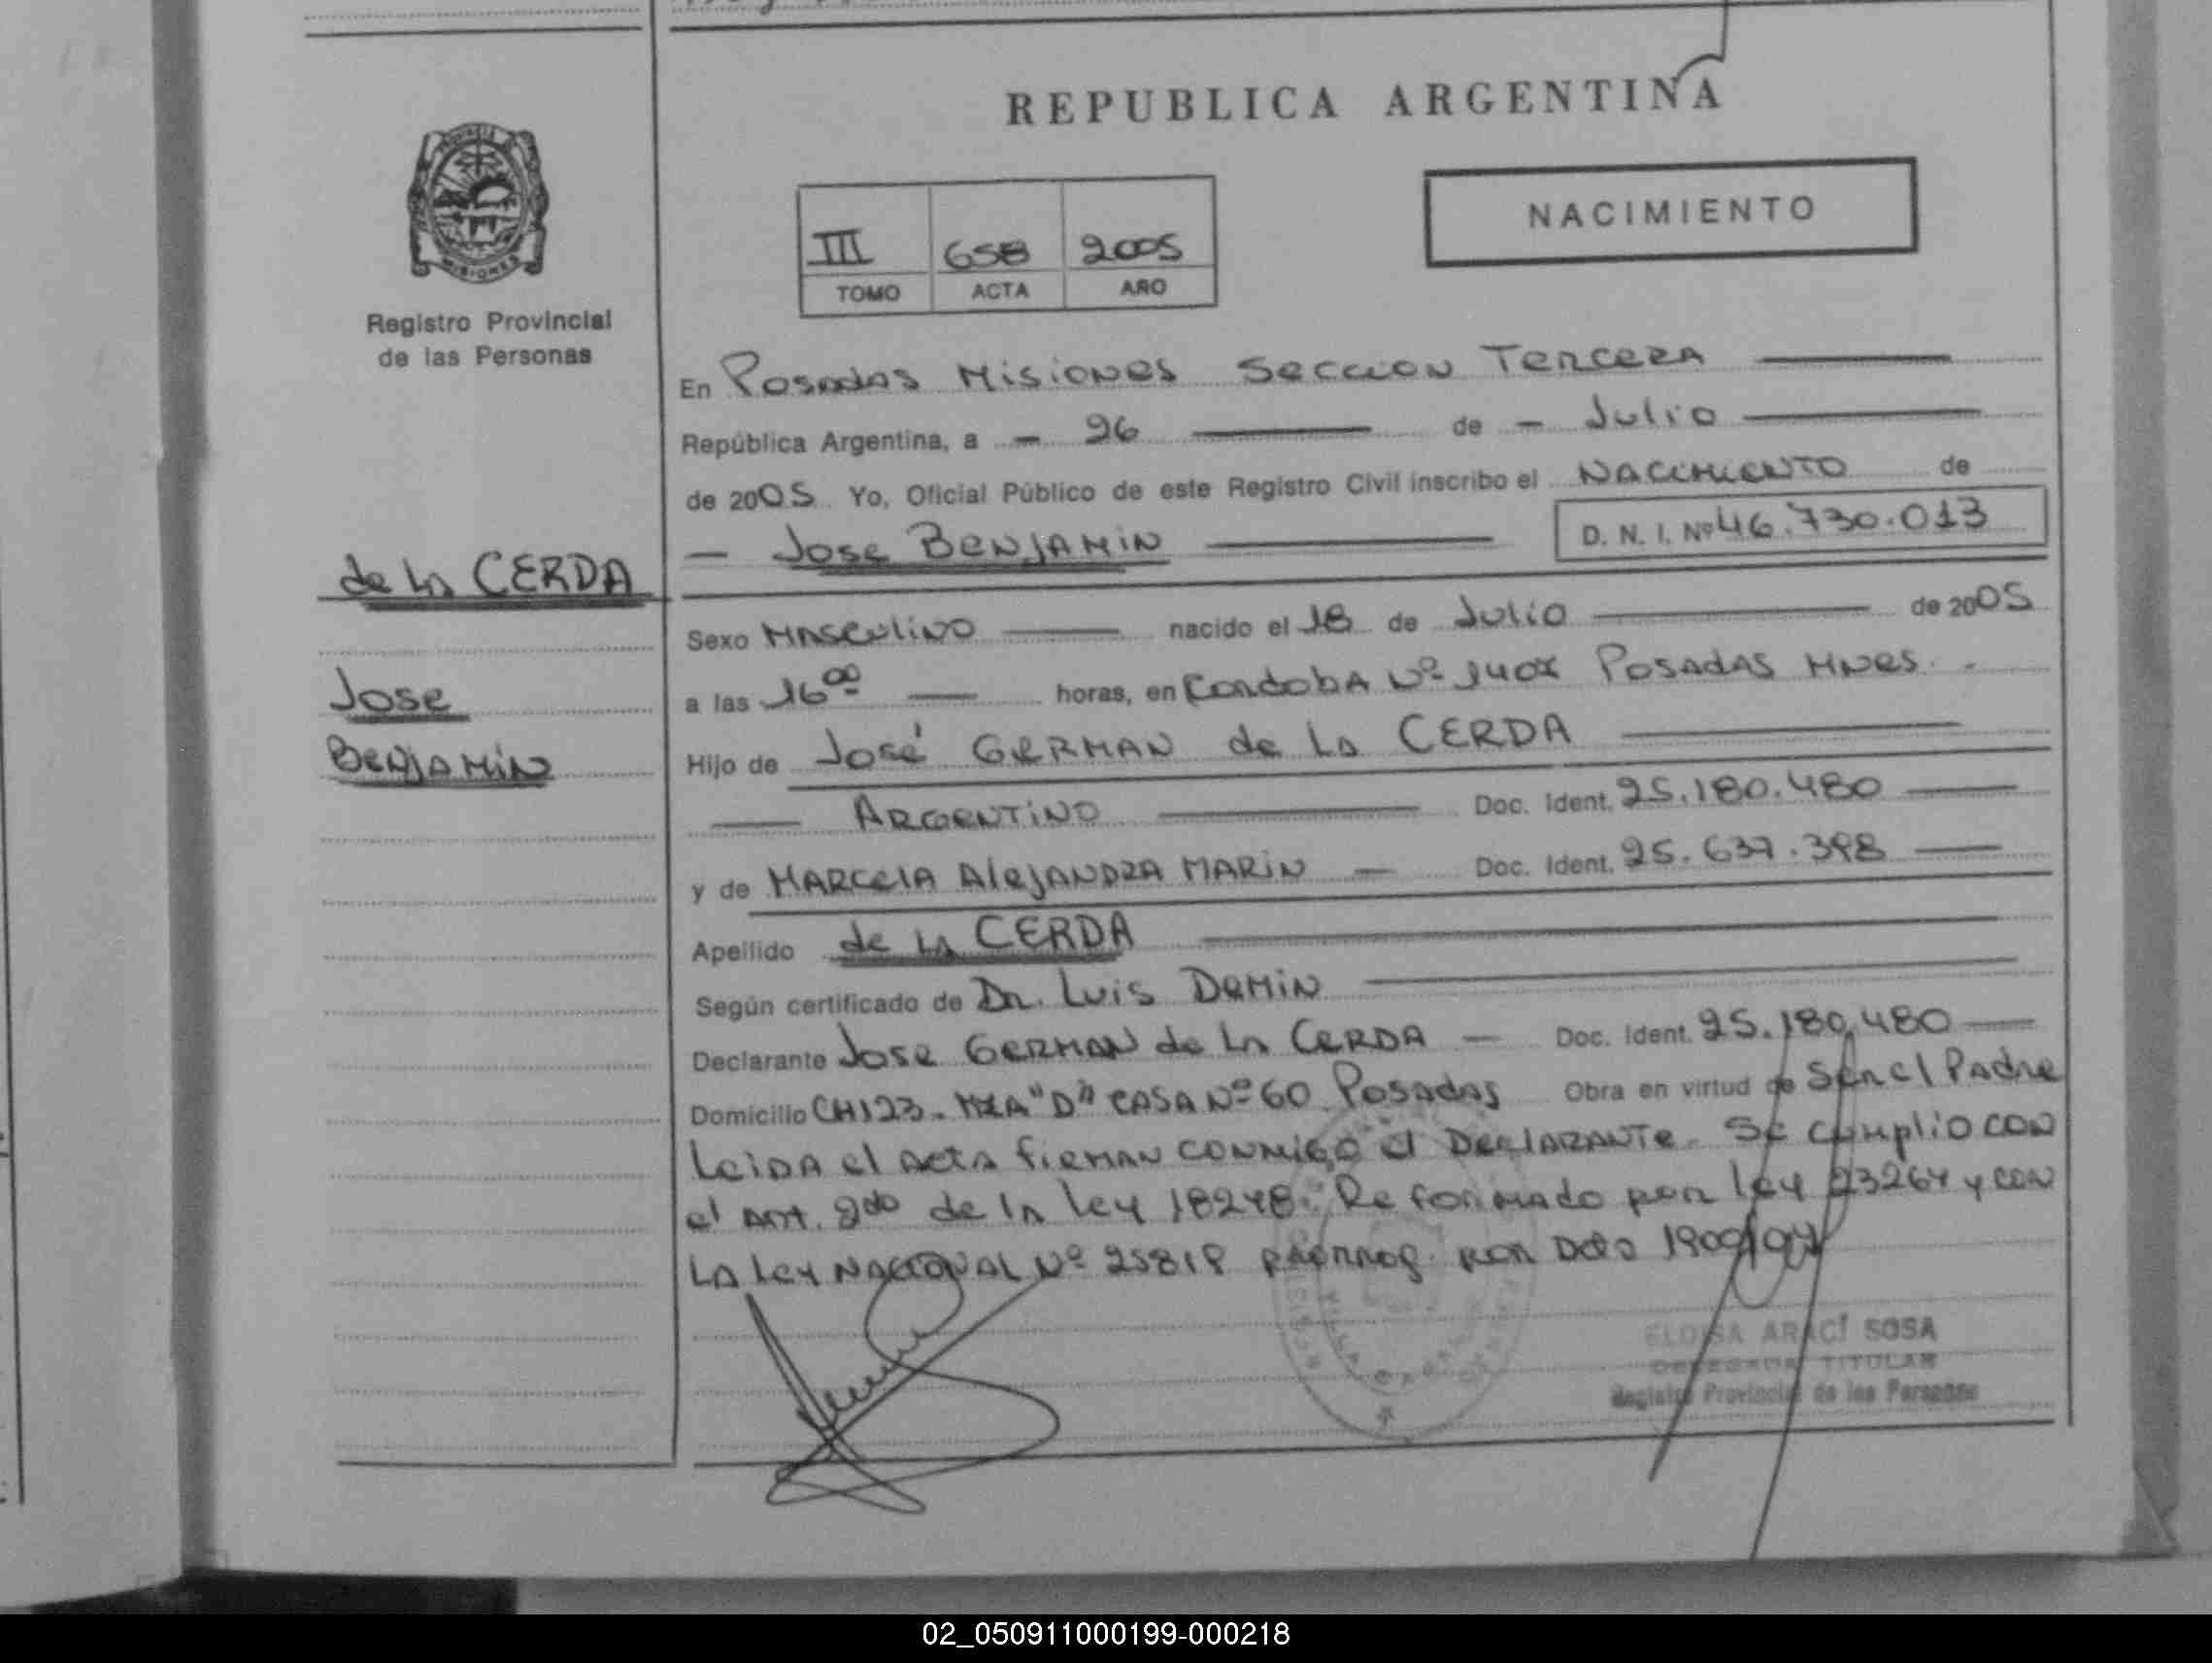 REPUBLICA ARGENTINA
PROVINCIA
MISIONES
Registro Provincial
de las Personas
NACIMIENTO
III 658 2005
TOMO ACTA AÑO
En Posadas Misiones Seccion Tercera
República Argentina, a - 26 de - Julio
de 2005 Yo, Oficial Público de este Registro Civil inscribo el NACIMIENTO de
- Jose BENJAMIN D. N. I. Nº 46.730.013
de la CERDA
Jose
BENJAMIN
Sexo MASCULINO nacido el 18 de Julio de 2005
a las 16 00 horas, en CordobA Nº Posadas Mnes.
Hijo de José GERMAN de la CERDA
ARGENTINO Doc. Ident. 25.180.480
y de MARCELA AlejANDRA MARIN - Doc. Ident. 25.637.398
Apellido de la CERDA
Según certificado de Dr. Luis DEMIN
Declarante Jose GERMAN de la CERDA - Doc. Ident. 25.180.480
Domicilio CH123. MZA "D" CASA Nº 60 Posadas Obra en virtud de Ser el Padre
LeiDA el Acta firman conmigo el DeclARANTe. Se cumplio con
el Art. 2do de la ley 18248. Reformado por ley 23264 y con
LA Ley NACIONAL Nº 25819 prorrog. por Dcto
ELOISA ARACI SOSA
DELEGADA TITULAR
Registro Provincial de las Personas
02_050911000199-000218